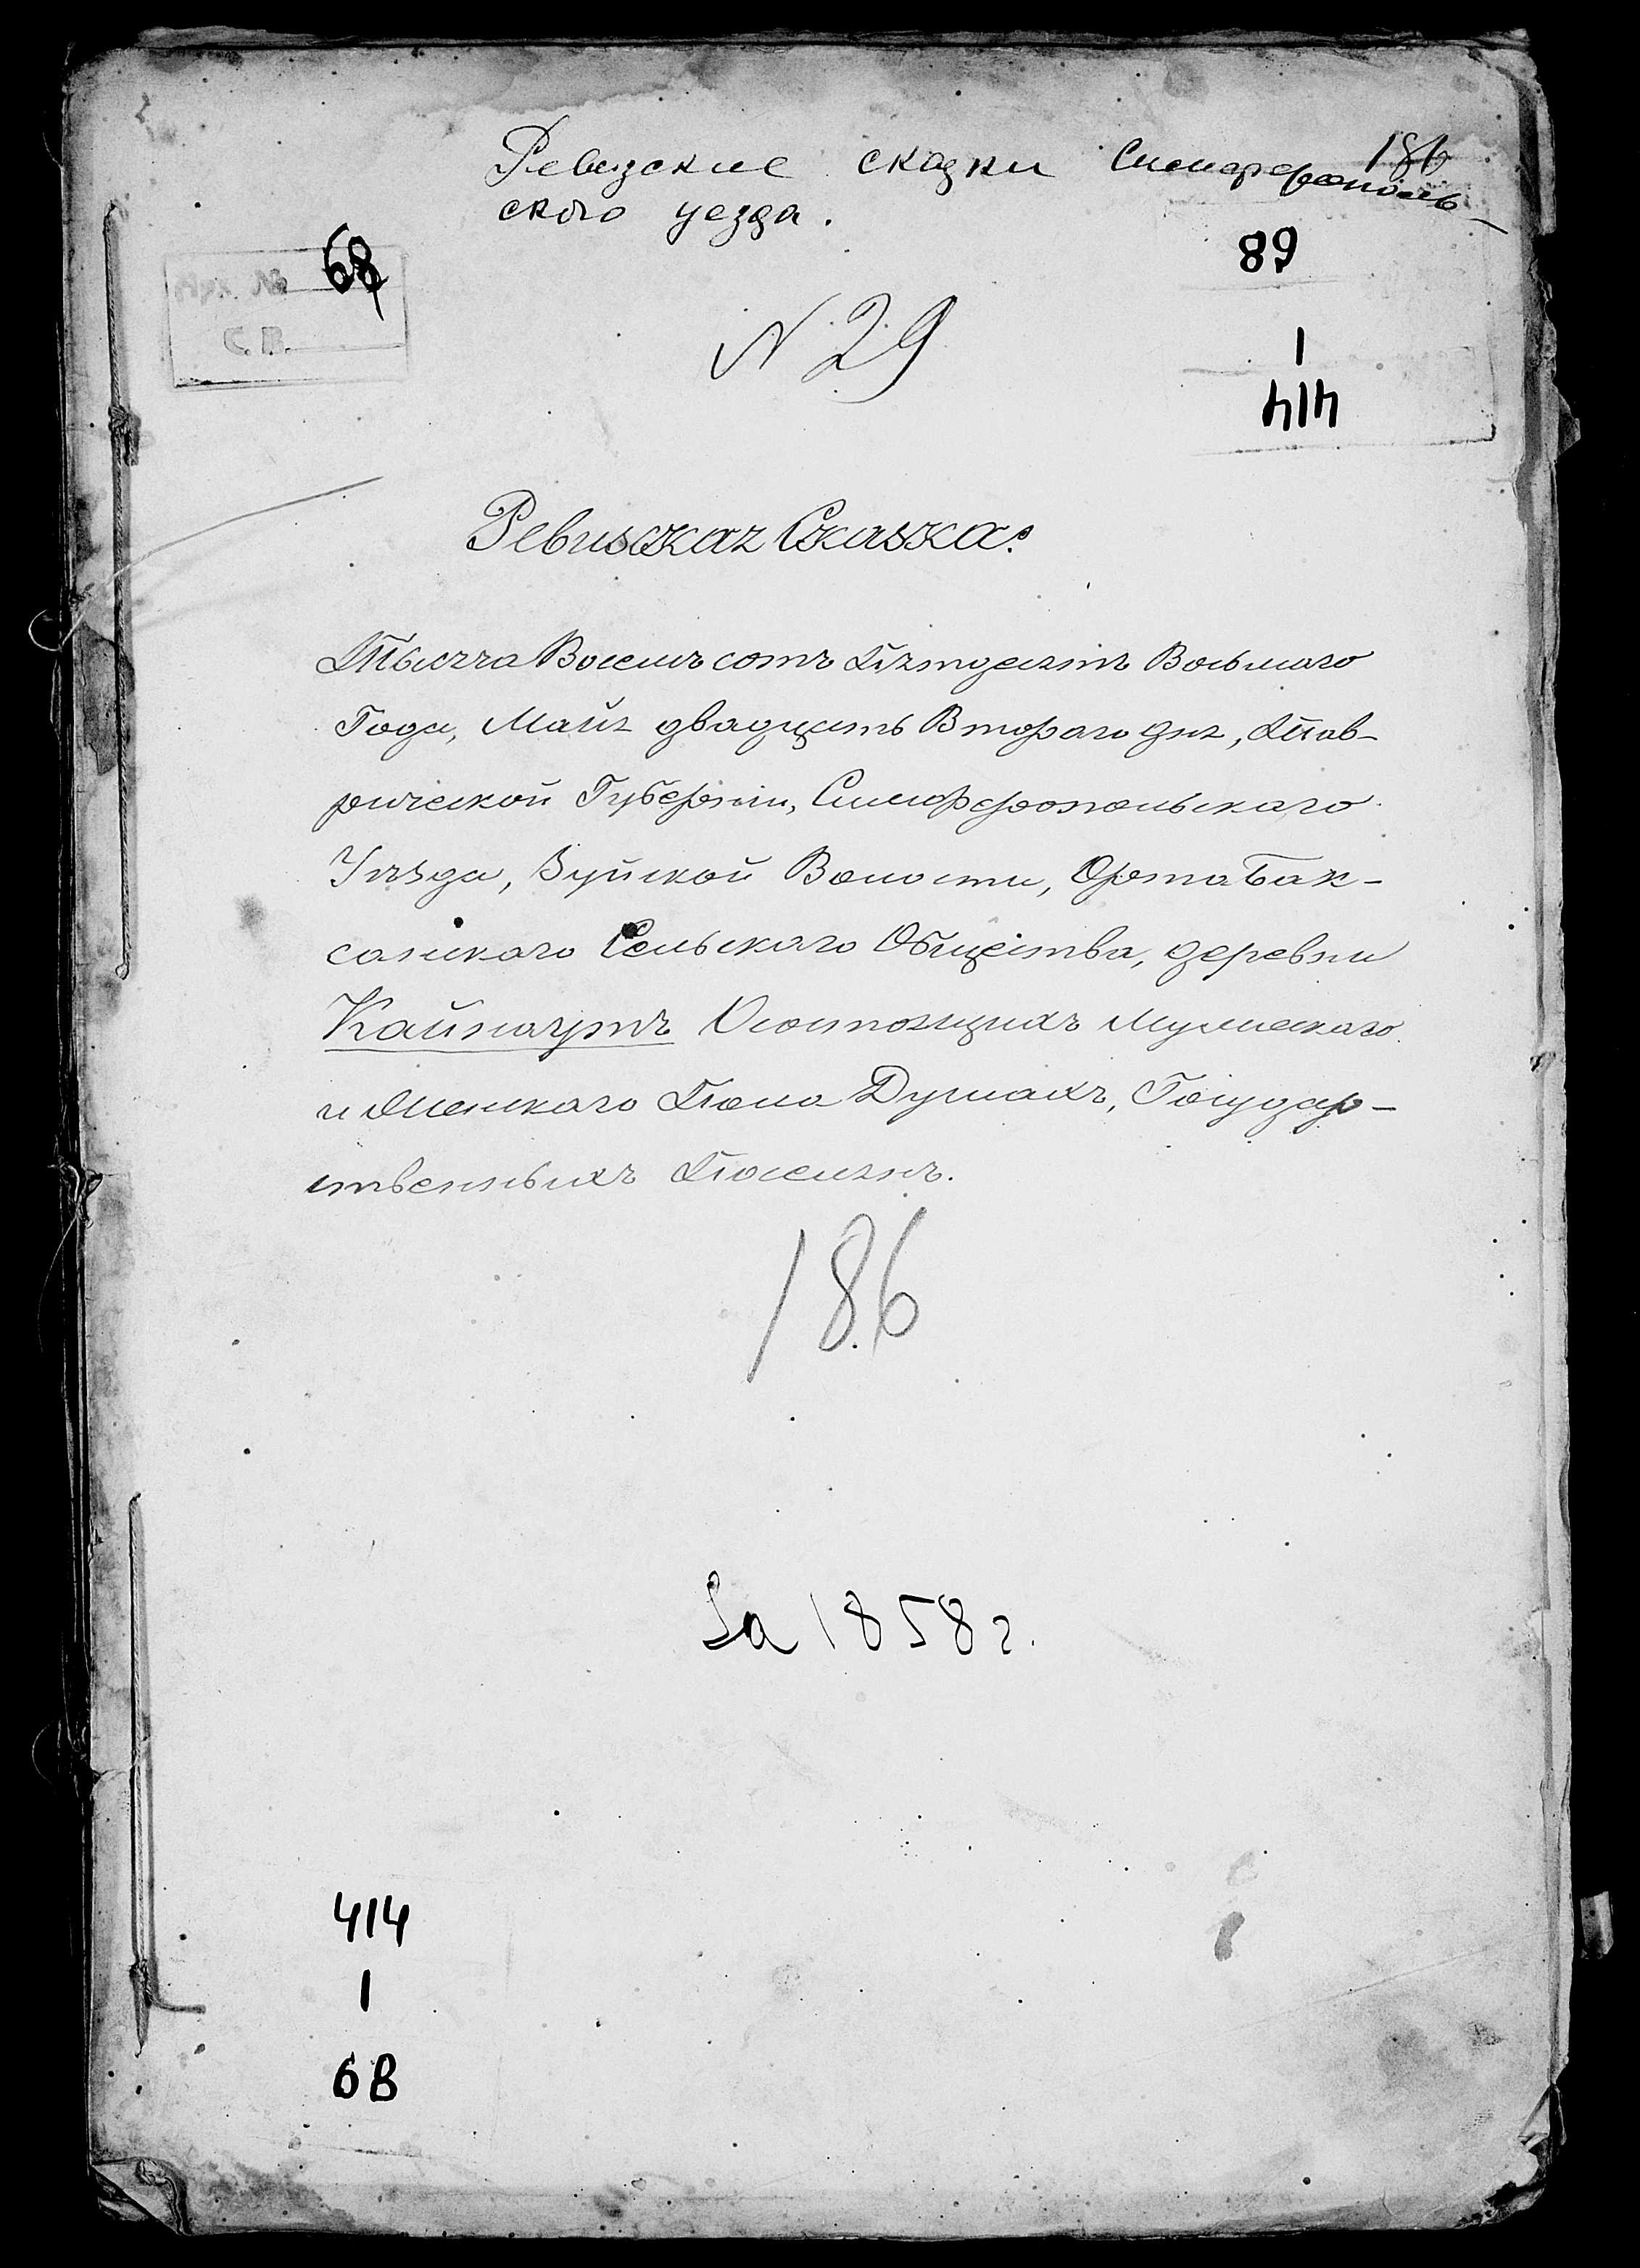 Ревизские сказки Симферополь-
ского уезда.
186
68
Арх. №
С. П.
89
1
414
N 29
Ревизская Сказка.
Тысяча Восемь сотъ Пятьдесятъ Восьмаго
Года, Маія двадцать Втораго дня, Тав-
рической Губерніи, Симферопольскаго
Уѣзда, Зуйской Волости, Орта Бак-
санскаго Сельскаго Общества, деревни
Кайнаутъ О состоящихъ Мужескаго
и Женскаго Пола Душахъ, Государ-
ственныхъ Поселянъ.
186
За 1858 г.
414
1
68